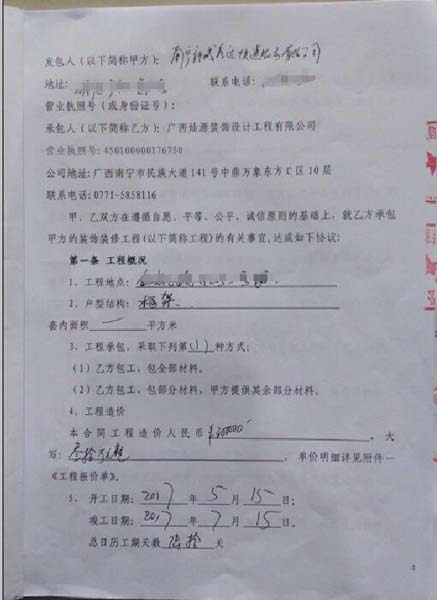 发包人（以下简称甲方）：南宁
地址： 联系电话：
营业执照号（或身份证号）：
承包人（以下简称乙方）：广西灿源装饰设计工程有限公司
营业执照号:450100000176750
公司地址:广西南宁市民族大道141号中鼎万象东方C区10层
联系电话:0771-5858116
甲、乙双方在遵循自愿、平等、公平、诚信原则的基础上，就乙方承包
甲方的装饰装修工程(以下简称工程)的有关事宜,达成如下协议:
第一条 工程概况
1、工程地点：
2、户型结构：框架
套内面积 一 平方米
3、工程承包，采取下列第(1)种方式：
（1）乙方包工，包全部材料。
（2）乙方包工，包部分材料，甲方提供其余部分材料。
4、工程造价
本合同工程造价人民币 ，大
写：叁拾万元整 ，单价明细详见附件一
《工程报价单》。
5、开工日期：2017年5月15日；
竣工日期：2017年7月15日。
总日历工期天数 陆拾 天
2